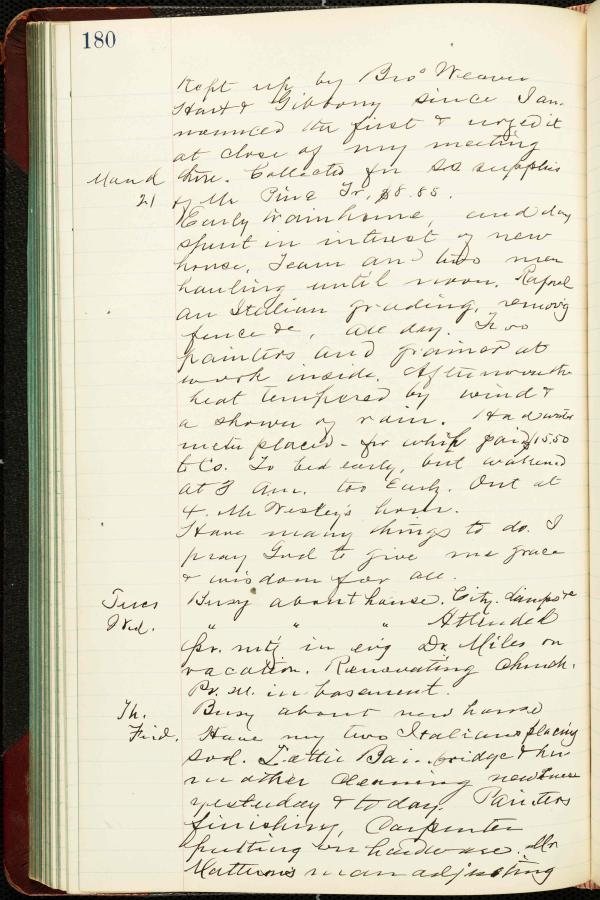 180
Kept up by Bro Weaver
Hart & Gibbony since I an-
nounced the first & urged it
at close of my meeting
there. Collected for SS supplies
Mond of Mr Pine Jr, $8.85.
21 Early train home, and day
spent in interest of new
house. Team and two men
hauling until noon. Rafael
an Italian grading, removing
fence &c, all day. Two
painters and grainer at
work inside. Afternoon the
heat tempered by wind &
a shower of rain. Had water
meter placed - for which paid $15.50
to Co. To bed early, but wakened
at 3 am. too Early. Out at
4. Mr Wesley's hour.
Have many things to do. I
pray God to give me grace
& wisdom for all.
Tues Busy about house. City. Lamps &c
Wed. " " " Attended
pr. mtg in evg Dr. Miles on
vacation. Renovating Church.
Pr. M. in basement.
Th. Busy about new house
Frid. Have my two Italians placing
sod. Lettie Bainbridge & her
mother cleaning new house
yesterday & today. Painters
finishing, Carpenter
putting on hardware. Mr
Matterns man adjusting